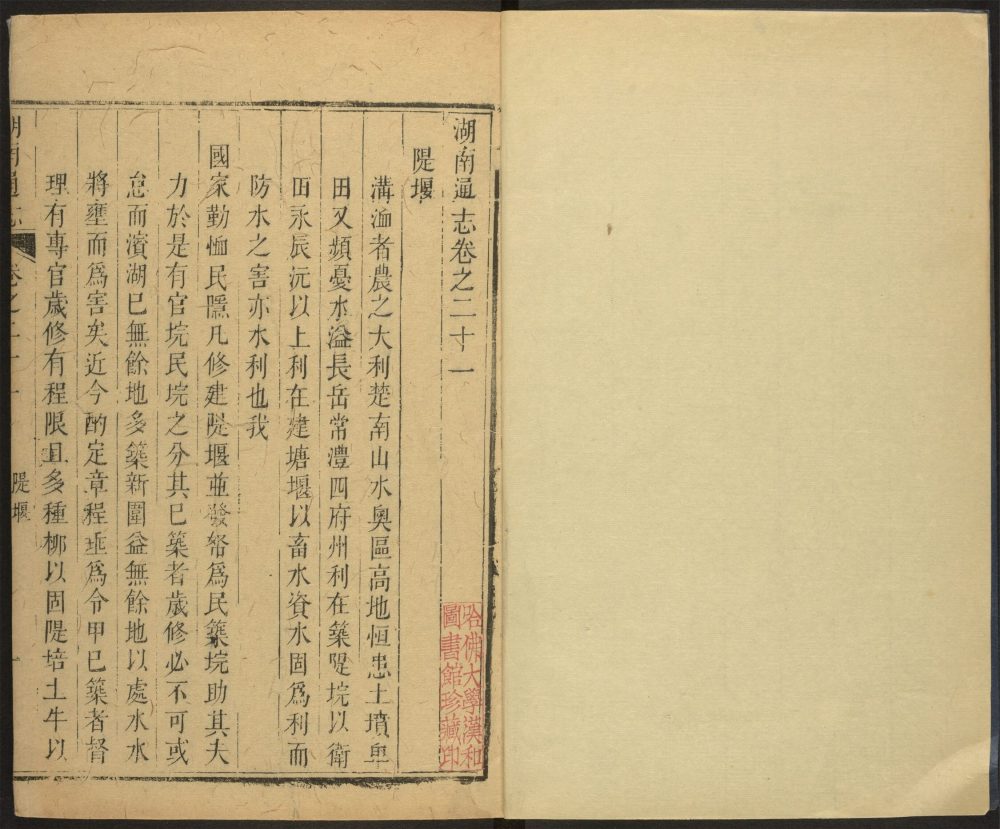 湖南通志卷之二十一
隄堰
溝洫者農之大利楚南山水奧區高地恒患土墳卑
田又頻憂水溢長岳常澧四府州利在築隄垸以衛
田永辰沅以上利在建塘堰以畜水資水固爲利而
防水之害亦水利也我
國家勤恤民隱凡修建隄堰並發帑爲民築垸助其夫
力於是有官垸民垸之分其已築者歲修必不可或
怠而濱湖已無餘地多築新圍益無餘地以處水水
將壅而爲害矣近今酌定章程垂爲令甲已築者督
理有專官歲修有程限且多種柳以固隄培土牛以
湖南通志
卷之二十一
隄堰
一
哈佛大學漢和
圖書館珍藏印